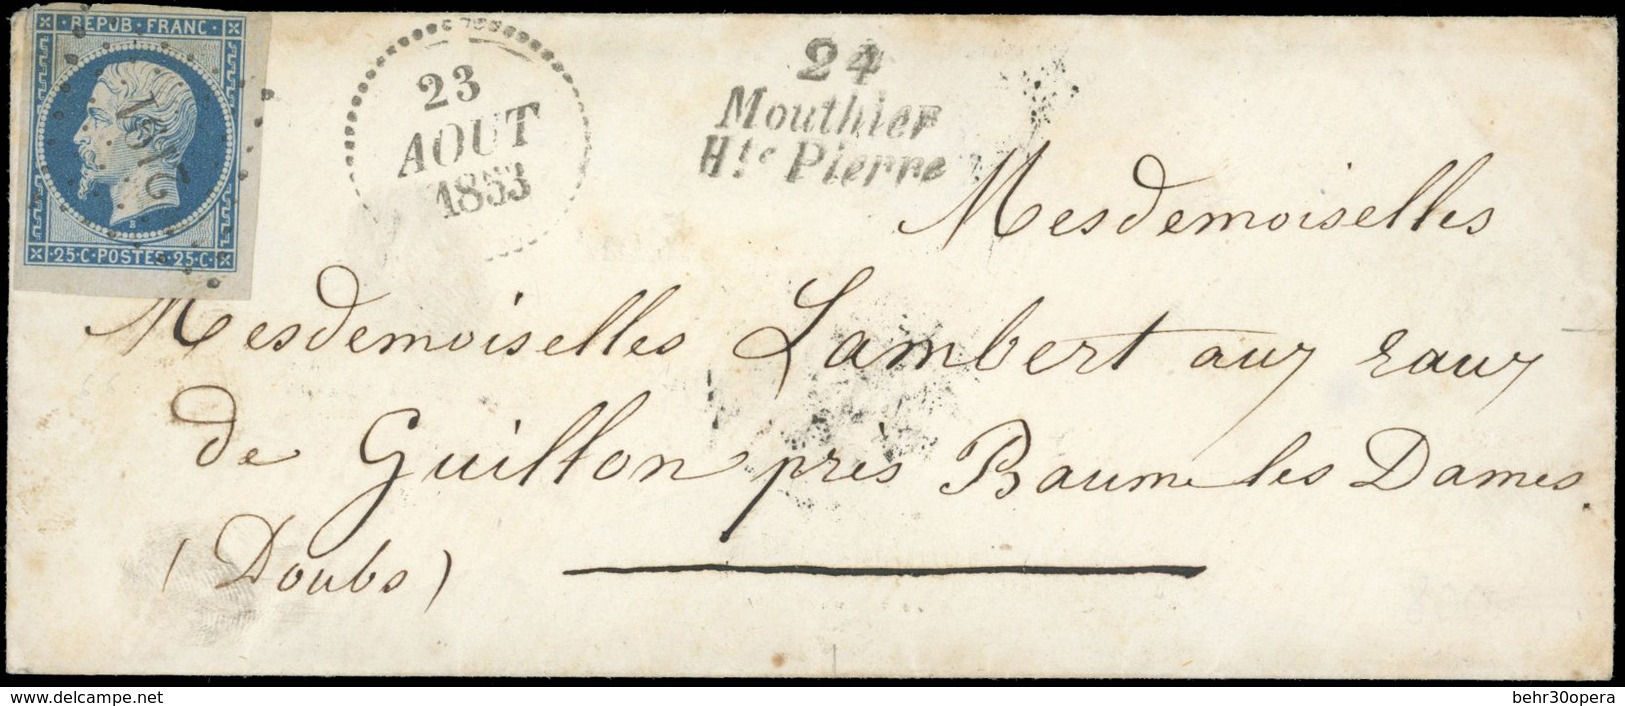 REPUB·FRANC·
·25·C·POSTES·25·C·
23
AOUT
1853
24
Mouthier
Hte Pierre
Mesdemoiselles
Mesdemoiselles Lambert aux eaux
de Guillon près Baume les Dames.
(Doubs)
www.delcampe.net
behr30opera